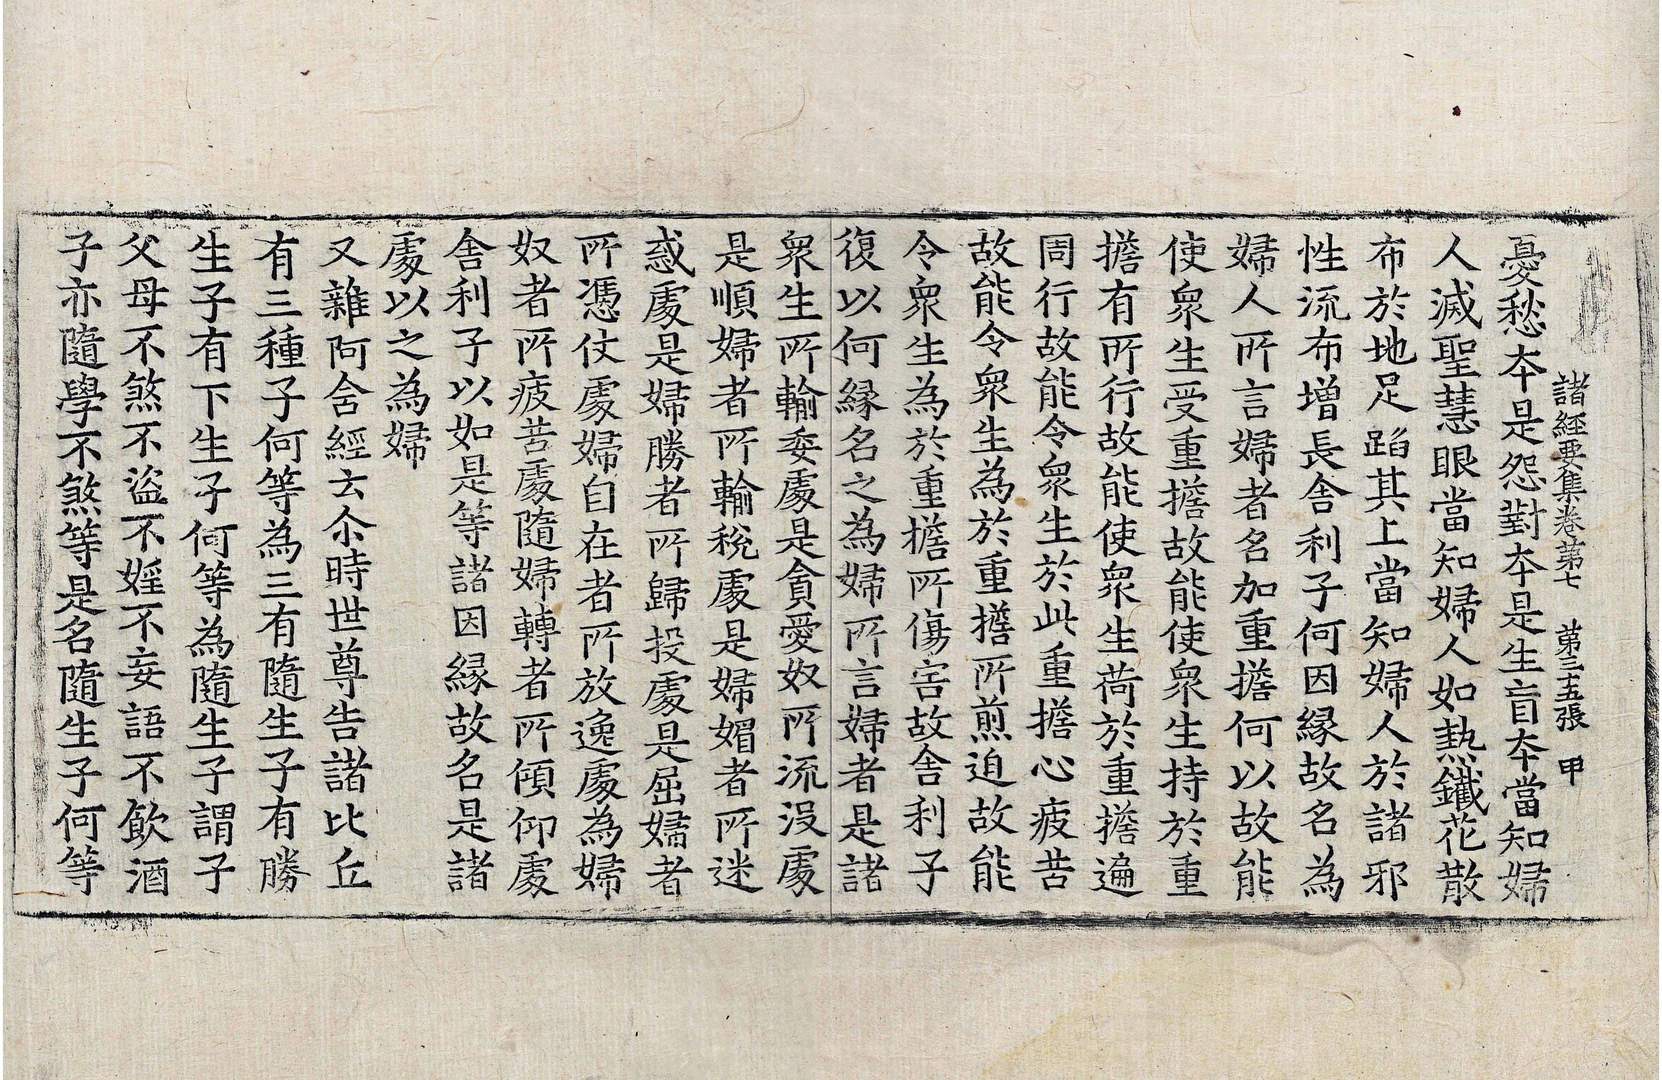 諸經要集卷第七 第三十五張 甲
憂愁本是怨對本是生盲本當知婦
人滅聖慧眼當知婦人如熱鐵花散
布於地足蹈其上當知婦人於諸邪
性流布增長舍利子何因緣故名為
婦人所言婦者名加重擔何以故能
使衆生受重擔故能使衆生持於重
擔有所行故能使衆生荷於重擔遍
周行故能令衆生於此重擔心疲苦
故能令衆生為於重擔所煎迫故能
令衆生為於重擔所傷害故舍利子
復以何緣名之為婦所言婦者是諸
衆生所輸委處是貪愛奴所流沒處
是順婦者所輸稅處是婦媚者所迷
惑處是婦勝者所歸投處是屈婦者
所憑仗處婦自在者所放逸處為婦
奴者所疲苦處隨婦轉者所傾仰處
舍利子以如是等諸因緣故名是諸
處以之為婦
又雜阿舍經云尒時世尊告諸比丘
有三種子何等為三有隨生子有勝
生子有下生子何等為隨生子謂子
父母不煞不盜不婬不妄語不飲酒
子亦隨學不煞等是名隨生子何等